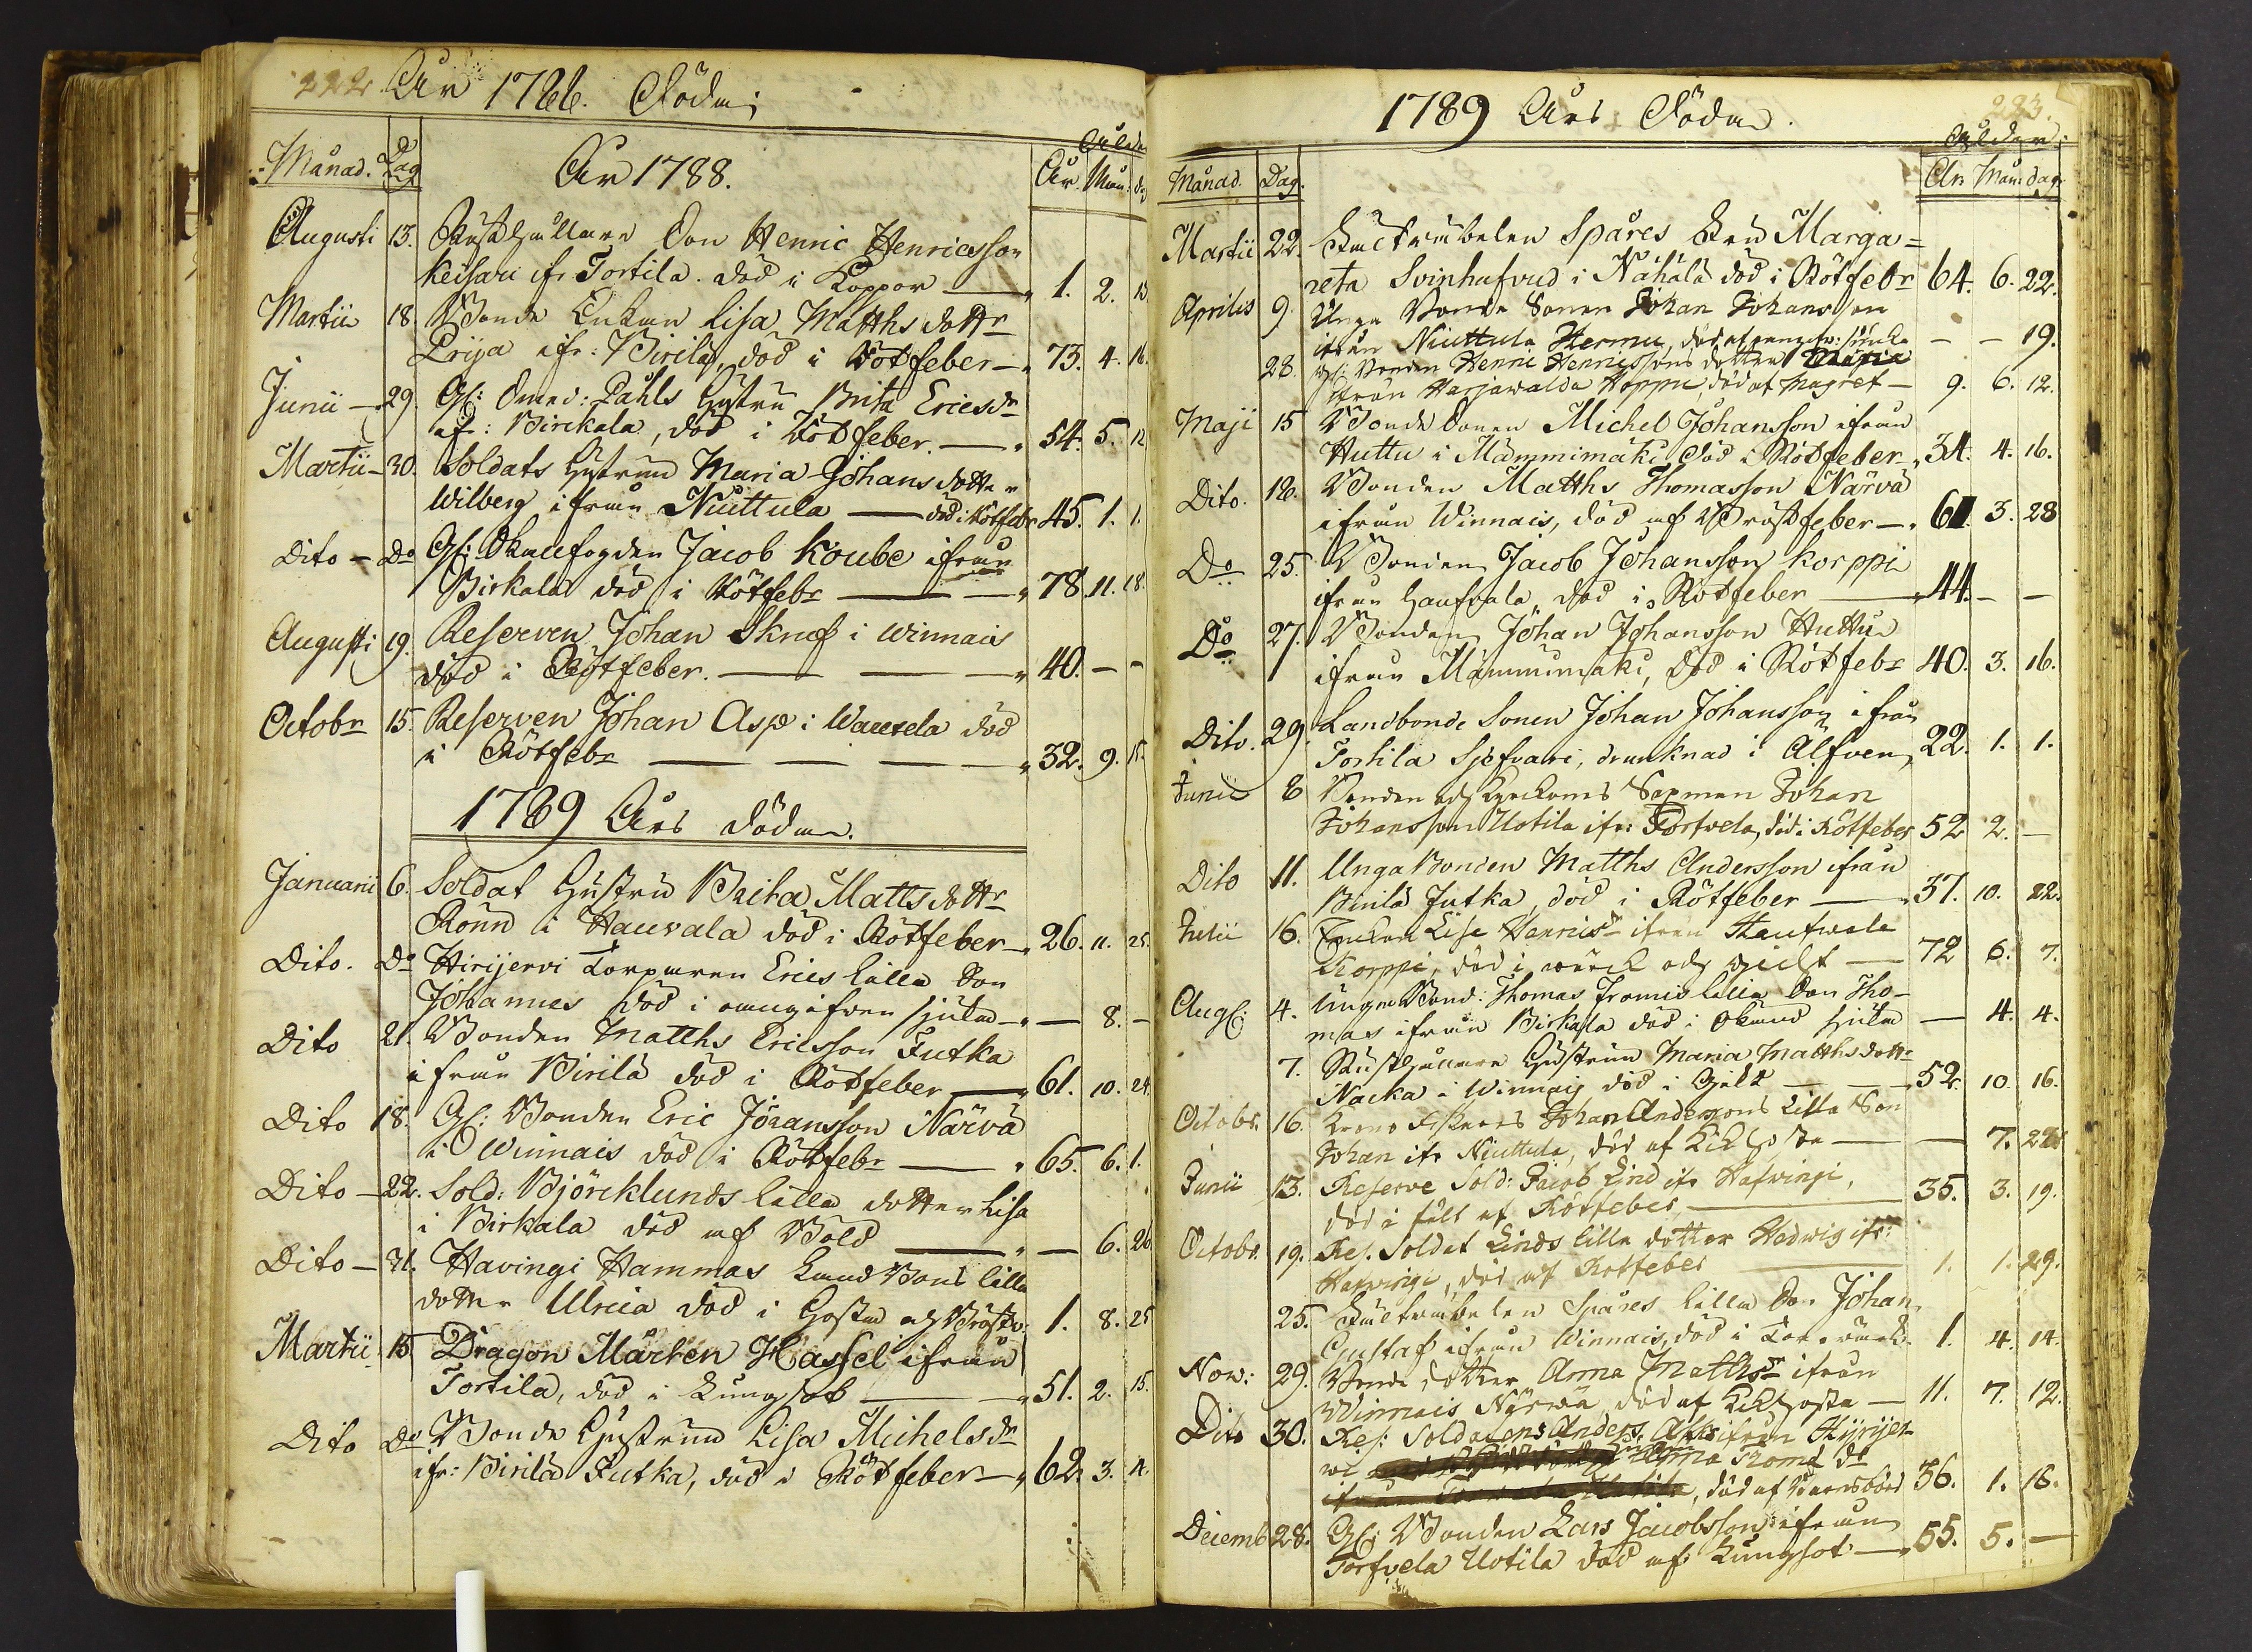 222. År 1788. Döde;
Månad. Dag
År 1788.
Ålder
År. Mån: d
Augusti 13. Rusthållare Son Henric Henricsson
Keisari ifr. Tortila död i Koppor — 1. 2. 10.
Martii 18 Bonde Enkan Lisa Matths dottr
Prija ifr: Birila, död i Rötfeber — 73. 4. 16.
Junii — 29. Gl: Påhls Hustru Brita Ericsdr
ifr: Birckala, död i Rötfeber. — 54. 5. 12
Martii — 30. Soldats Hustrun Maria Johans dotter
Wilberg ifrån Niuttula — död i Rötfebr 45. 1. 1.
Dito — Do Gl: Jacob Koube ifrån
Birkala död i Rötfebr — 78. 11. 18.
Augusti 19. Reserven Johan Skruf i Winnais
död i Rötfeber. — 40. — —
Octobr 15. Reserven Johan Asp i Wauxela död
i Rötfebr — 32. 9. 15.
1789 Års Döde.
Januarii 6. Soldat Hustru Brita Mattsdottr
Rönn i Hauvala död i Rötfeber — 26. 11. 25.
Dito. Do Hirijervi Torparen Erics lilla Son
Johannes död i omogifven sjukd — — 8. —
Dito 21. Bonden Matths Ericsson Jutka
ifrån Birilä död i Rötfeber — 61. 10. 24.
Dito 18. Gl: Bonden Eric Jöransson Närvä
i Winnais död i Rötfebr — 65. 6. 1.
Dito — 22. Sold: Björcklunds lilla dotter Lisa
i Birkala död af Bold — — 6. 26
Dito — 31. Havingi Hammas Land Bond lilla
dotter Ulrica död i Hosta och Bröstv: 1. 8. 25
Martii 15. Dragon Mårten Hassel ifrån
Tortila, död i Lungsot — 51. 2. 15.
Dito Do Bonde Hustrun Lisa Michelsdr
ifr: Birilä Jutka, död i Rötfeber — 62. 3. 14.
1789 Års Döde.
223.
Ålder
Månad. Dag.
År Mån: dag
Martii 22. Spåres Enk Marga=
reta Svinhufvud i Nähälä död i Rötfebr 64. 6. 22.
Aprilis 9. Unga Bonde Sonen Johan Johansson
ifrån Niuttula Hermu, död af — — 19.
28. Gl: Bonden Henric Henricssons dotter Maria
ifrån Harjawalda Hoppu, död af Magref — 9. 6. 12.
Maji 15 Bonde Sonen Michel Johansson ifrån
Huttu i Mämmimäki död i Rötfeber — 34. 4. 16.
Dito. 18. Bonden Matths Thomasson Närvä
ifrån Winnais, död af Bröstfeber — 61. 3. 28
Do 25. Bonden Jacob Johansson Korppi
ifrån Haufvala, död i Rötfeber — 44. — —
Do 27. Bonden Johan Johansson Huttu
ifrån Mämmimäki, död i Rötfebr 40. 3. 16.
Dito. 29. Landbonde Sonen Johan Johansson ifrån
Tortila Sjefvari, drunknad i Älfven, 22. 1. 1.
Junii 8 Bonden och Kyrckans Sexman Johan
Johansson Uotila ifr: Torfvela, död i Rötfeber 52 2. —
Dito 11. Unga Bonden Matths Andersson ifrån
Birilä Jutka, död i Rötfeber — 37. 10. 22.
Julii 16. Enkan Lisa Henricsdr ifrån Haufwala
Korppi, död i wärck och gickt — 72 6. 7.
Aug: 4. Unga Bond: Thomas lilla Son Tho-
mas ifrån Birkala död i okänd sjukd — 4. 4.
7. Rusthållare Hustrun Maria Matthsdottr
Nacka i Winnais död i Gickt — 52. 10. 16.
Octobr. 16. Krono Fiskares Johan Anderssons lilla Son
Johan ifr Niuttula, död af Kickhosta — — 7. 28
Junii 13. Reserve Sold: Jacob Lind ifr Hafwingi,
död i fält af Rötfeber — 35. 3. 19.
Octobr. 19. Res. Soldat Linds lilla dotter Hedwig ifr:
Hafwingi, död af Rötfeber — 1. 1. 29.
25. Spåres lilla Son Johan
Gustaf ifrån Winnais, död i 1. 4. 14.
Nov: 29. Bonde dotter Anna Mattsdr ifrån
Winnais Närwä, död af Kickhosta — 11. 7. 12.
Dito 30. Res: Soldatens Anders Ask ifrån Hijrijer
wi Anna Thoms dr
död af Barnsbörd 36. 1. 16.
Decemb 28. Gl: Bonden Lars Jacobsson ifrån
Torfvela Uotila död af Lungsot — 55. 5. —